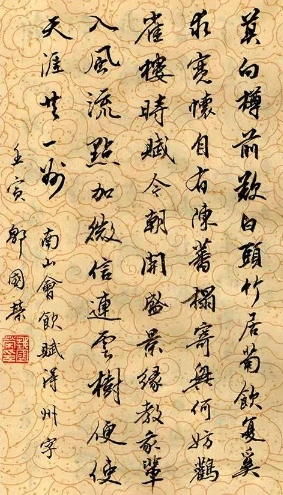 莫向樽前歎白頭竹居茍飲复奚
求寬懷自有陳蕃榻寄興何妨鸛
雀樓時賦今朝開盛景緣教我輩
入風流點加微信連雲樹便使
天涯共一州 南山會飲賦得州字
壬寅 國